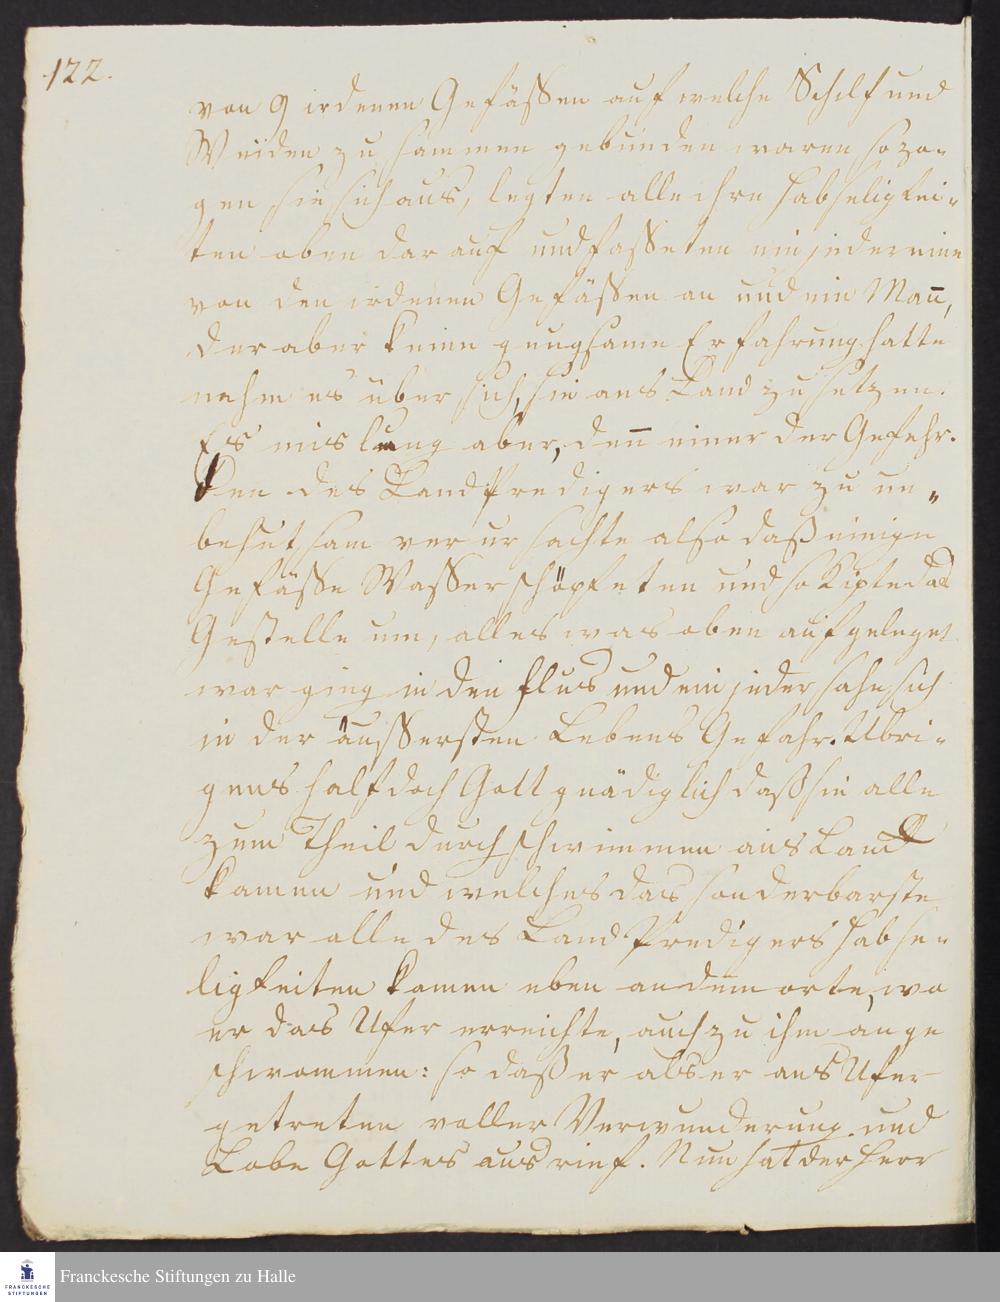 122.
von 9 irdenen Gefäßen auf welche Schilf und
Weiden zu sammen gebunden waren so zo-
gen sie sich aus, legten alle ihre Habseligkei-
ten oben dar auf und fasseten ein jeder eine
von den irdenen Gefäßen an und ein Mañ,
der aber keine gnugsame Erfahrung hatte
nahm es über sich, sie ans Land zu setzen.
Es mislung aber, deñ einer der Gefehr-
ten des Land Predigers war zu un-
behutsam ver ur sachte also daß einige
Gefäße Wasser schöpfeten und so kipte das
Gestelle um, alles was oben auf geleget
war ging in den Flus und ein jeder sahe sich
in der äussersten Lebens Gefahr. Ubri-
gens half doch Gott gnädiglich daß sie alle
zum Theil durch schwimmen ans Land
kamen und welches das sonderbarste
war alle des Land Predigers Habse-
ligkeiten kamen eben an dem orte, wo
er das Ufer erreichte, auch zu ihm an ge
schwommen: so daß er als er ans Ufer
getreten voller Verwunderung und
Lobe Gottes aus rief. Nun hat der Herr
Franckesche Stiftungen zu Halle
FRANCKESCHE
STIFTUNGEN